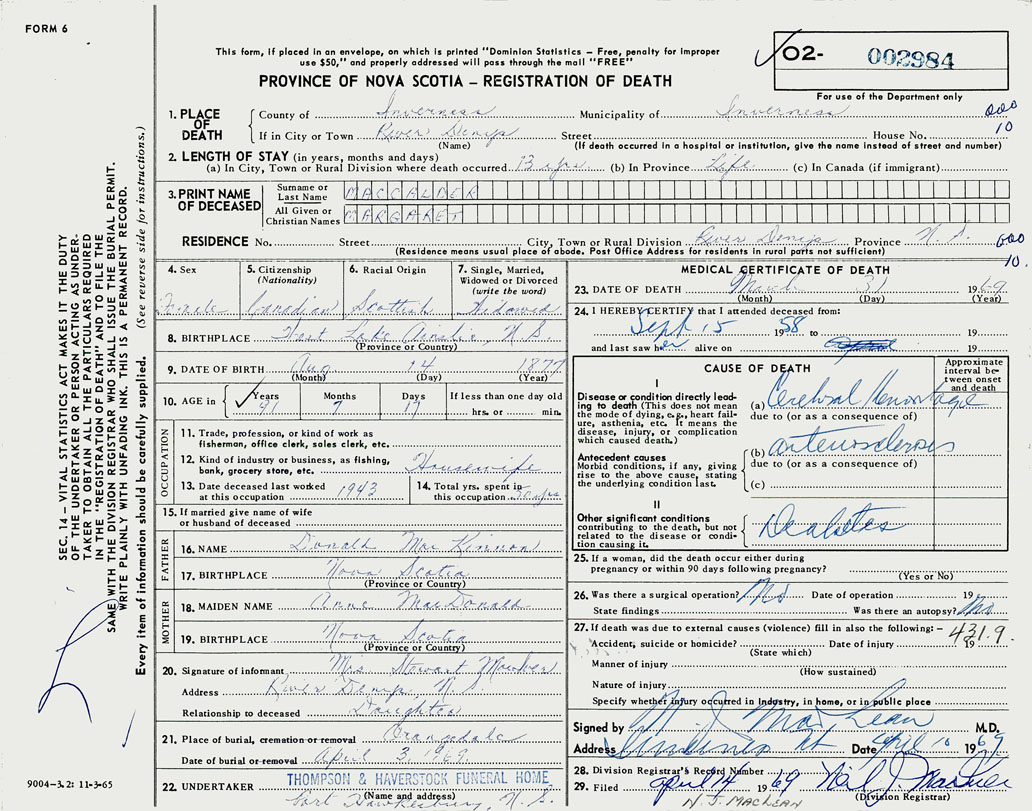 FORM 6
This form, if placed in an envelope, on which is printed "Dominion Statistics – Free, penalty for improper
use $50," and properly addressed will pass through the mail "FREE"
PROVINCE OF NOVA SCOTIA – REGISTRATION OF DEATH
02- 002984
For use of the Department only
1. PLACE OF DEATH
County of Inverness Municipality of Inverness
If in City or Town River Denys Street House No.
(Name) (If death occurred in a hospital or institution, give the name instead of street and number)
000
10
2. LENGTH OF STAY (in years, months and days)
(a) In City, Town or Rural Division where death occurred 13 yrs. (b) In Province Life (c) In Canada (if immigrant)
3. PRINT NAME OF DECEASED
Surname or Last Name MACCALDER
All Given or Christian Names MARGARET
RESIDENCE No. Street City, Town or Rural Division River Denys Province N. S.
(Residence means usual place of abode. Post Office Address for residents in rural parts not sufficient)
000
10.
4. Sex
Female
5. Citizenship
(Nationality)
Canadian
6. Racial Origin
Scottish
7. Single, Married,
Widowed or Divorced
(write the word)
Widowed
8. BIRTHPLACE West Lake Ainslie, N. S.
(Province or Country)
9. DATE OF BIRTH Aug. 14 1877
(Month) (Day) (Year)
10. AGE in Years Months Days If less than one day old
91 7 17 hrs. or min.
OCCUPATION
11. Trade, profession, or kind of work as
fisherman, office clerk, sales clerk, etc.
12. Kind of industry or business, as fishing,
bank, grocery store, etc. Housewife
13. Date deceased last worked
at this occupation 1943
14. Total yrs. spent in
this occupation yrs
15. If married give name of wife
or husband of deceased
FATHER
16. NAME Donald Mac Kinnon
17. BIRTHPLACE Nova Scotia
(Province or Country)
MOTHER
18. MAIDEN NAME Anne MacDonald
19. BIRTHPLACE Nova Scotia
(Province or Country)
20. Signature of informant Mrs Stewart
Address River Denys, N. S.
Relationship to deceased Daughter
21. Place of burial, cremation or removal Orangedale
Date of burial or removal April 3, 1969
22. UNDERTAKER THOMPSON & HAVERSTOCK FUNERAL HOME
(Name and address)
Port Hawkesbury, N. S.
MEDICAL CERTIFICATE OF DEATH
23. DATE OF DEATH March 31 1969
(Month) (Day) (Year)
24. I HEREBY CERTIFY that I attended deceased from:
Sept 15 1958 to 19
and last saw her alive on 19
CAUSE OF DEATH
Approximate
interval be-
tween onset
and death
I
Disease or condition directly lead-
ing to death (This does not mean
the mode of dying, e.g., heart fail-
ure, asthenia, etc. It means the
disease, injury, or complication
which caused death.)
(a) Cerebral Hemorrhage
due to (or as a consequence of)
Antecedent causes
Morbid conditions, if any, giving
rise to the above cause, stating
the underlying condition last.
(b) arterosclerosis
due to (or as a consequence of)
(c)
II
Other significant conditions
contributing to the death, but not
related to the disease or condi-
tion causing it.
Diabetes
25. If a woman, did the death occur either during
pregnancy or within 90 days following pregnancy?
(Yes or No)
26. Was there a surgical operation? No Date of operation 19
State findings Was there an autopsy? No
27. If death was due to external causes (violence) fill in also the following: – 431.9.
Accident, suicide or homicide? Date of injury 19
(State which)
Manner of injury
(How sustained)
Nature of injury
Specify whether injury occurred in Industry, in home, or in public place
Signed by N. J. MacLean M.D.
Address Date April 10 1969
28. Division Registrar's Record Number
29. Filed april 4 1969 Neil J. MacLean
(Division Registrar)
N. J. MACLEAN
SEC. 14 – VITAL STATISTICS ACT MAKES IT THE DUTY
OF THE UNDERTAKER OR PERSON ACTING AS UNDER-
TAKER TO OBTAIN ALL THE PARTICULARS REQUIRED
IN THE "REGISTRATION OF DEATH" AND TO FILE THE
SAME WITH THE DIVISION REGISTRAR WHO SHALL ISSUE THE BURIAL PERMIT.
WRITE PLAINLY WITH UNFADING INK. THIS IS A PERMANENT RECORD.
Every item of information should be carefully supplied. (See reverse side for instructions.)
9004-3.2: 11-3-65